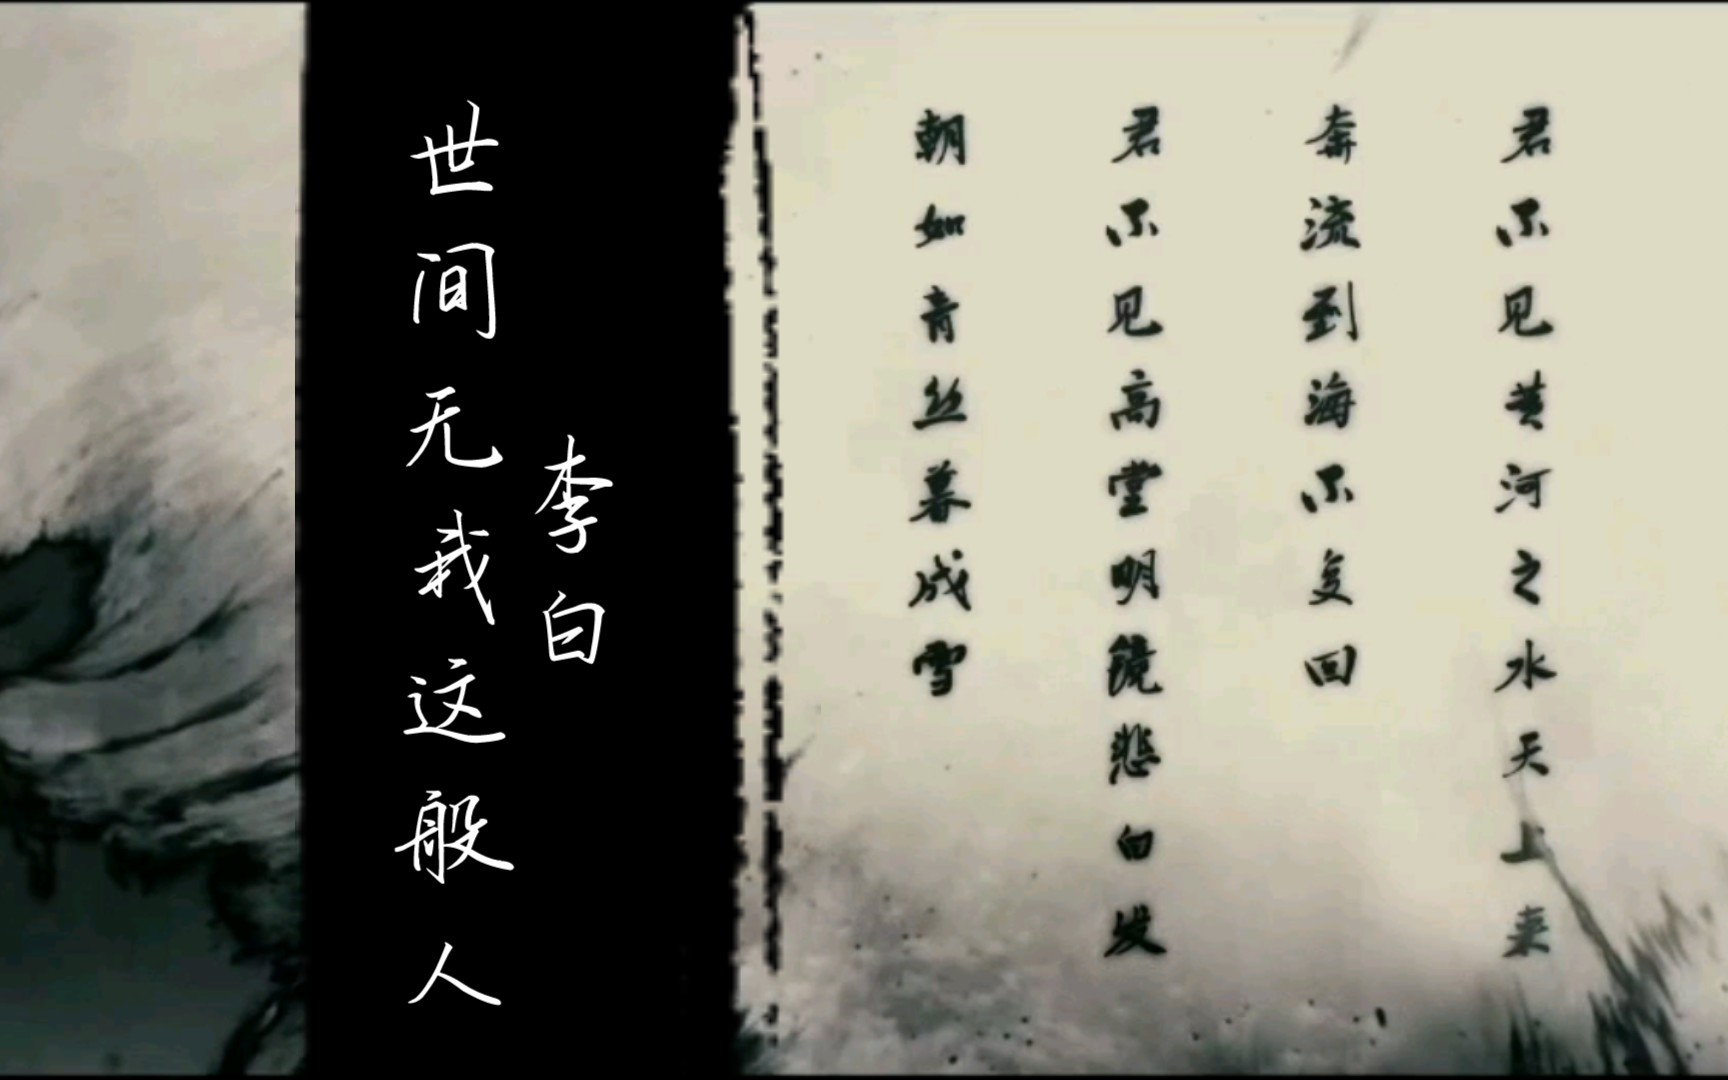 君不见黄河之水天上来
奔流到海不复回
君不见高堂明镜悲白发
朝如青丝暮成雪
李白
世间无我这般人